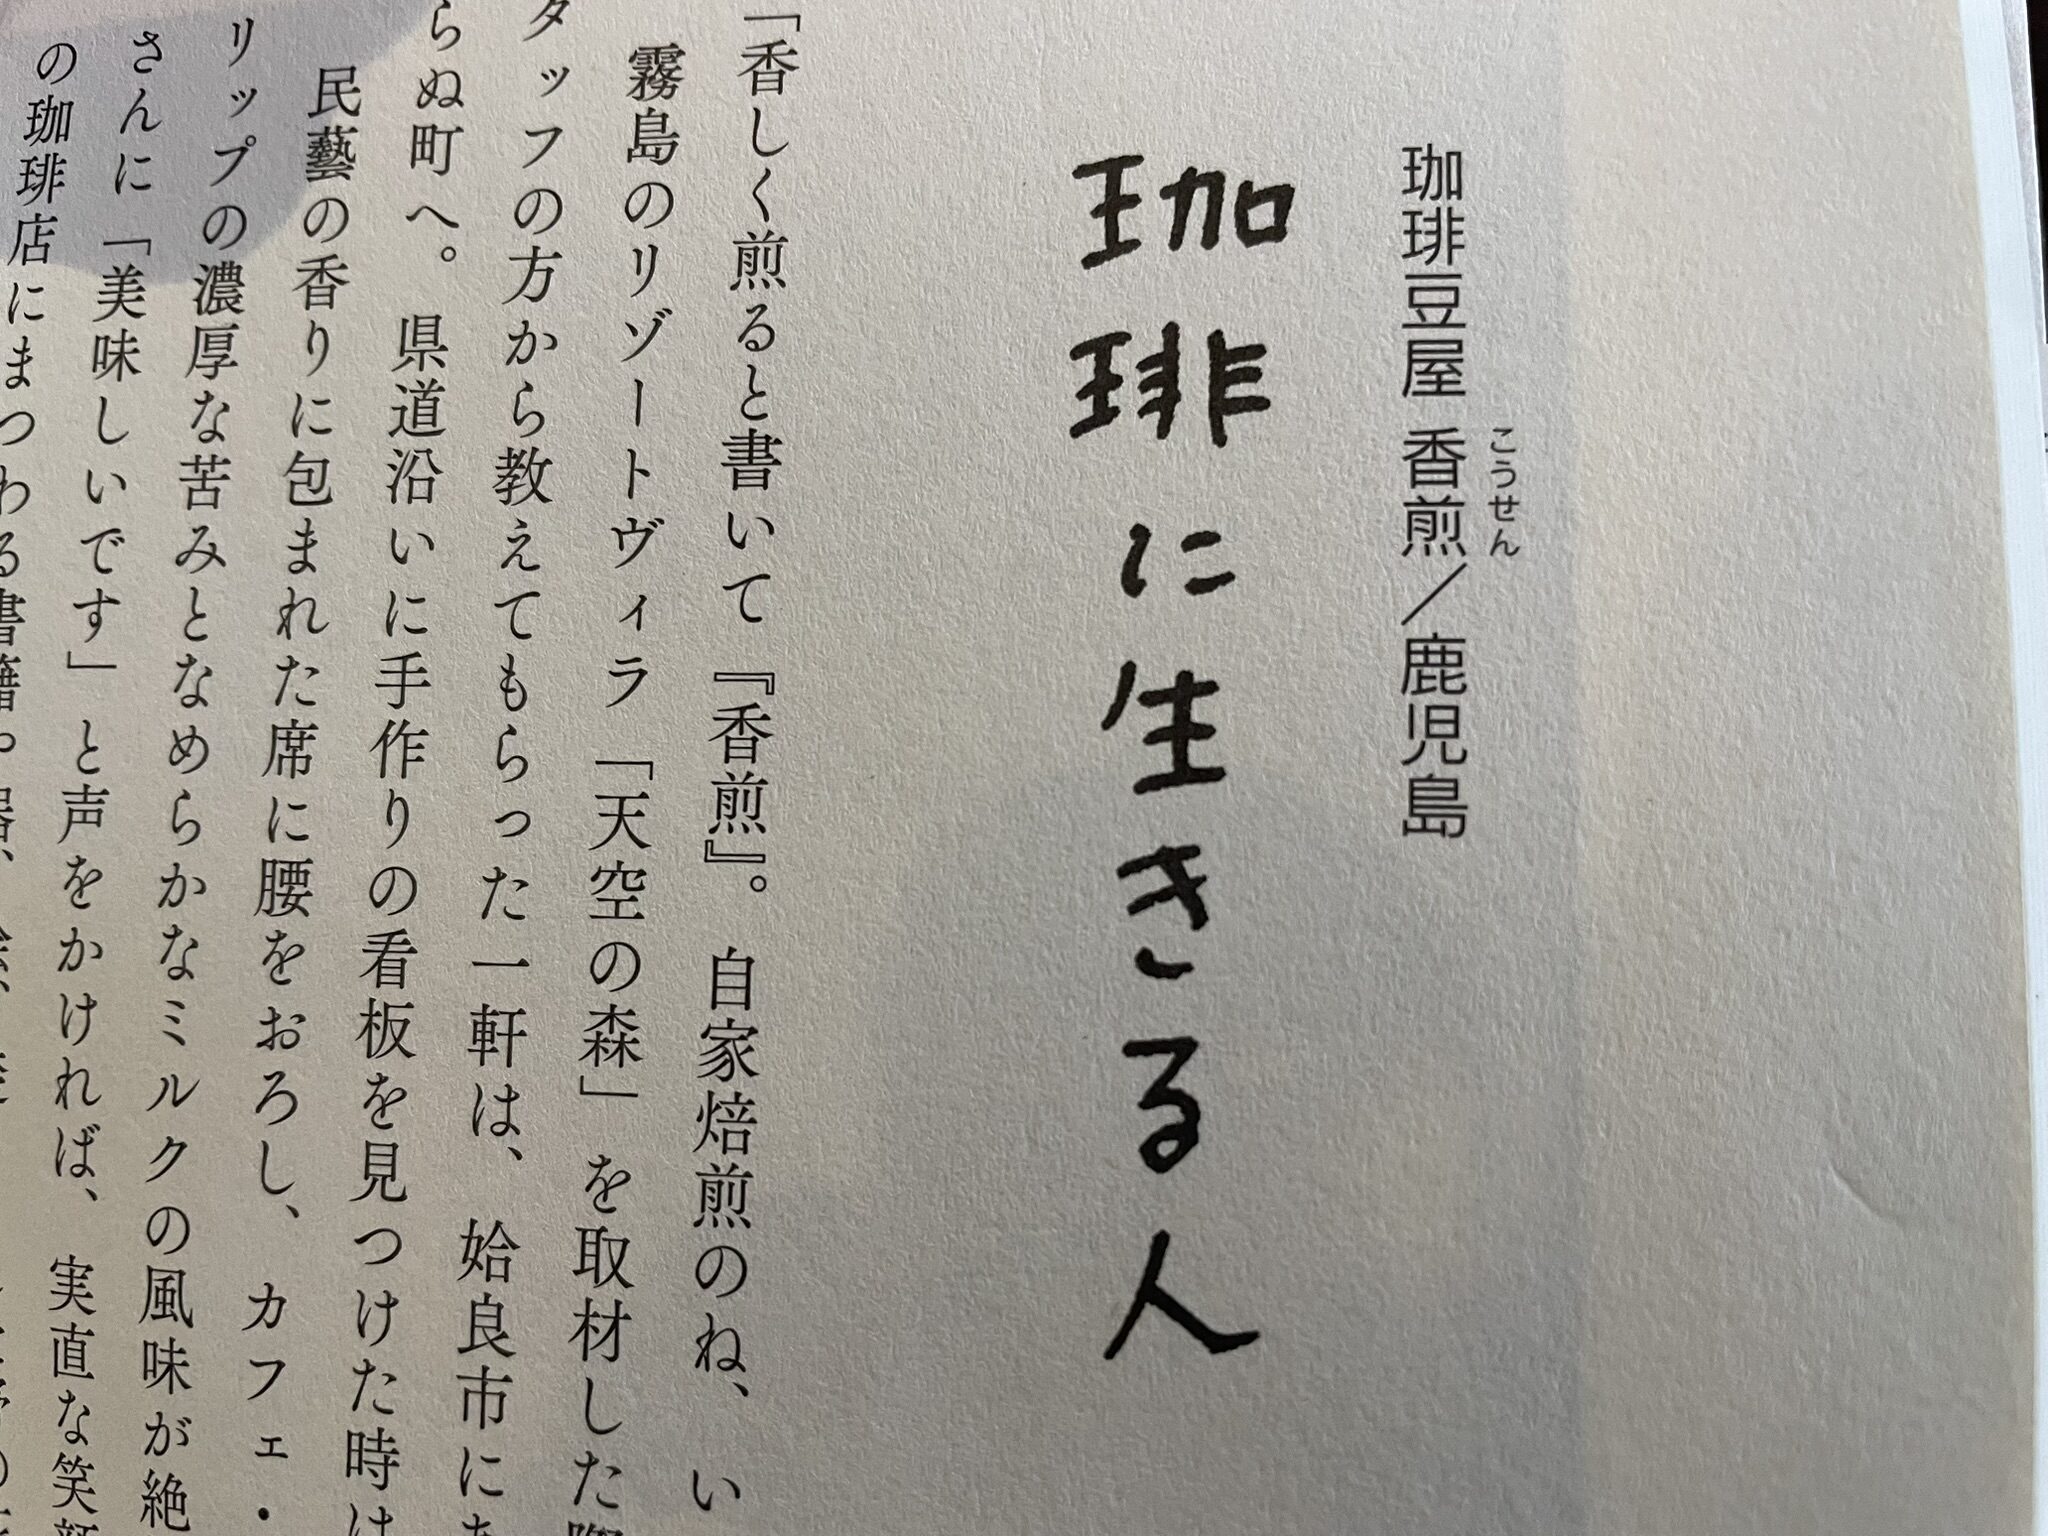 珈琲豆屋 香煎／鹿児島
こうせん
珈琲に生きる人
「香しく煎ると書いて『香煎』。自家焙煎のね、い
霧島のリゾートヴィラ「天空の森」を取材した際
タッフの方から教えてもらった一軒は、姶良市にあ
らぬ町へ。県道沿いに手作りの看板を見つけた時は
民藝の香りに包まれた席に腰をおろし、カフェ・
リップの濃厚な苦みとなめらかなミルクの風味が絶
さんに「美味しいです」と声をかければ、実直な笑顔
の珈琲店にまつわる書籍や器、